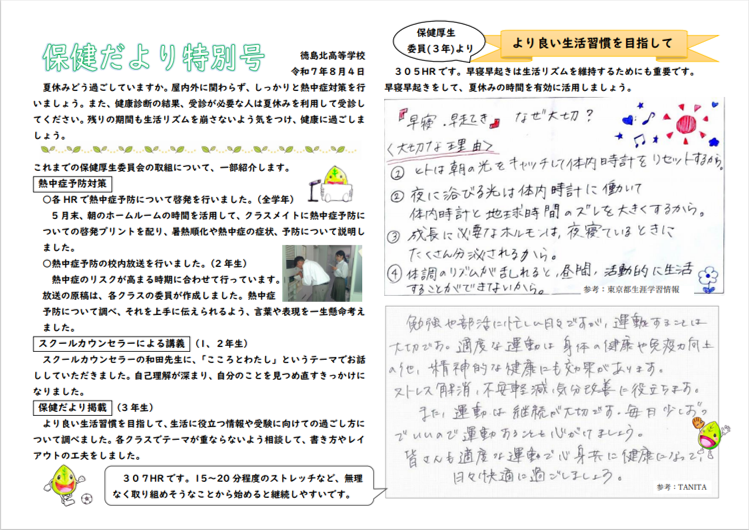 保健だより特別号
徳島北高等学校
令和7年8月4日
夏休みどう過ごしていますか。屋内外に関わらず、しっかりと熱中症対策を行
いましょう。また、健康診断の結果、受診が必要な人は夏休みを利用して受診し
てください。残りの期間も生活リズムを崩さないよう気をつけ、健康に過ごしま
しょう。
これまでの保健厚生委員会の取組について、一部紹介します。
熱中症予防対策
○各HRで熱中症予防について啓発を行いました。（全学年）
5月末、朝のホームルームの時間を活用して、クラスメイトに熱中症予防に
ついての啓発プリントを配り、暑熱順化や熱中症の症状、予防について説明し
ました。
○熱中症予防の校内放送を行いました。（2年生）
熱中症のリスクが高まる時期に合わせて行っています。
放送の原稿は、各クラスの委員が作成しました。熱中症
予防について調べ、それを上手に伝えられるよう、言葉や表現を一生懸命考え
ました。
スクールカウンセラーによる講義（1、2年生）
スクールカウンセラーの和田先生に、「こころとわたし」というテーマでお話
ししていただきました。自己理解が深まり、自分のことを見つめ直すきっかけに
なりました。
保健だより掲載（3年生）
より良い生活習慣を目指して、生活に役立つ情報や受験に向けての過ごし方に
ついて調べました。各クラスでテーマが重ならないよう相談して、書き方やレイ
アウトの工夫をしました。
307HRです。15～20分程度のストレッチなど、無理
なく取り組めそうなことから始めると継続しやすいです。
保健厚生
委員（3年）より
より良い生活習慣を目指して
305HRです。早寝早起きは生活リズムを維持するためにも重要です。
早寝早起きをして、夏休みの時間を有効に活用しましょう。
『早寝・早起き』なぜ大切？
〈大切な理由〉
① ヒトは朝の光をキャッチして体内時計をリセットするから。
② 夜に浴びる光は体内時計に働いて
体内時計と地球時間のズレを大きくするから。
③ 成長に必要なホルモンは、夜寝ているときに
たくさん分泌されるから。
④ 体調のリズムが乱れると、昼間、活動的に生活
することができないから。
参考：東京都生涯学習情報
勉強や部活に忙しい日々ですが、運動することは
大切です。適度な運動は身体の健康や免疫力向上
の他、精神的な健康にも効果があります。
ストレス解消、不安軽減、気分改善に役立ちます。
また、運動は継続が大切です。毎日少しずつ
でいいので運動することを心がけましょう。
皆さんも適度な運動で心身共に健康になって、
日々快適に過ごしましょう。
参考：TANITA